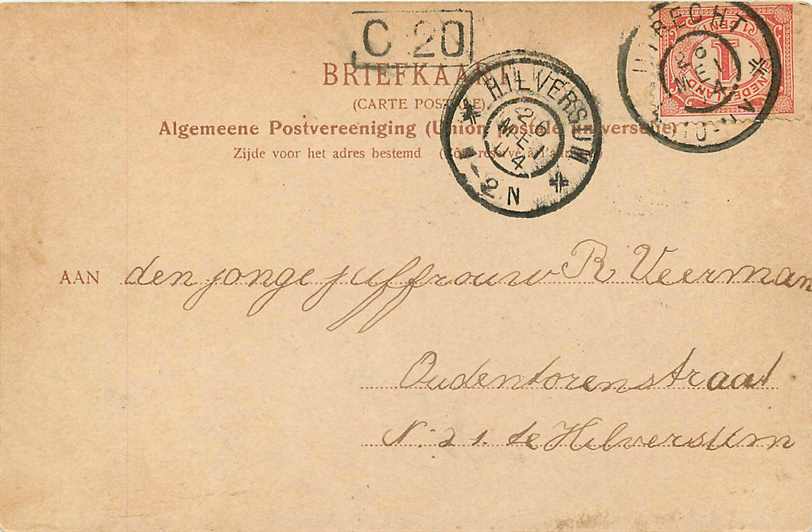 C 20
BRIEFKAART
(CARTE POSTALE)
Algemeene Postvereeniging (Union postale universelle)
Zijde voor het adres bestemd (Côté réservé à l'adresse)
UTRECHT
26 MEI 04
10-11 N
NEDERLAND
1
CENT
HILVERSUM
26 MEI 04
1-2 N
AAN den jonge juffrouw R Veerman
Oudentorenstraat
N. 21. te Hilversum